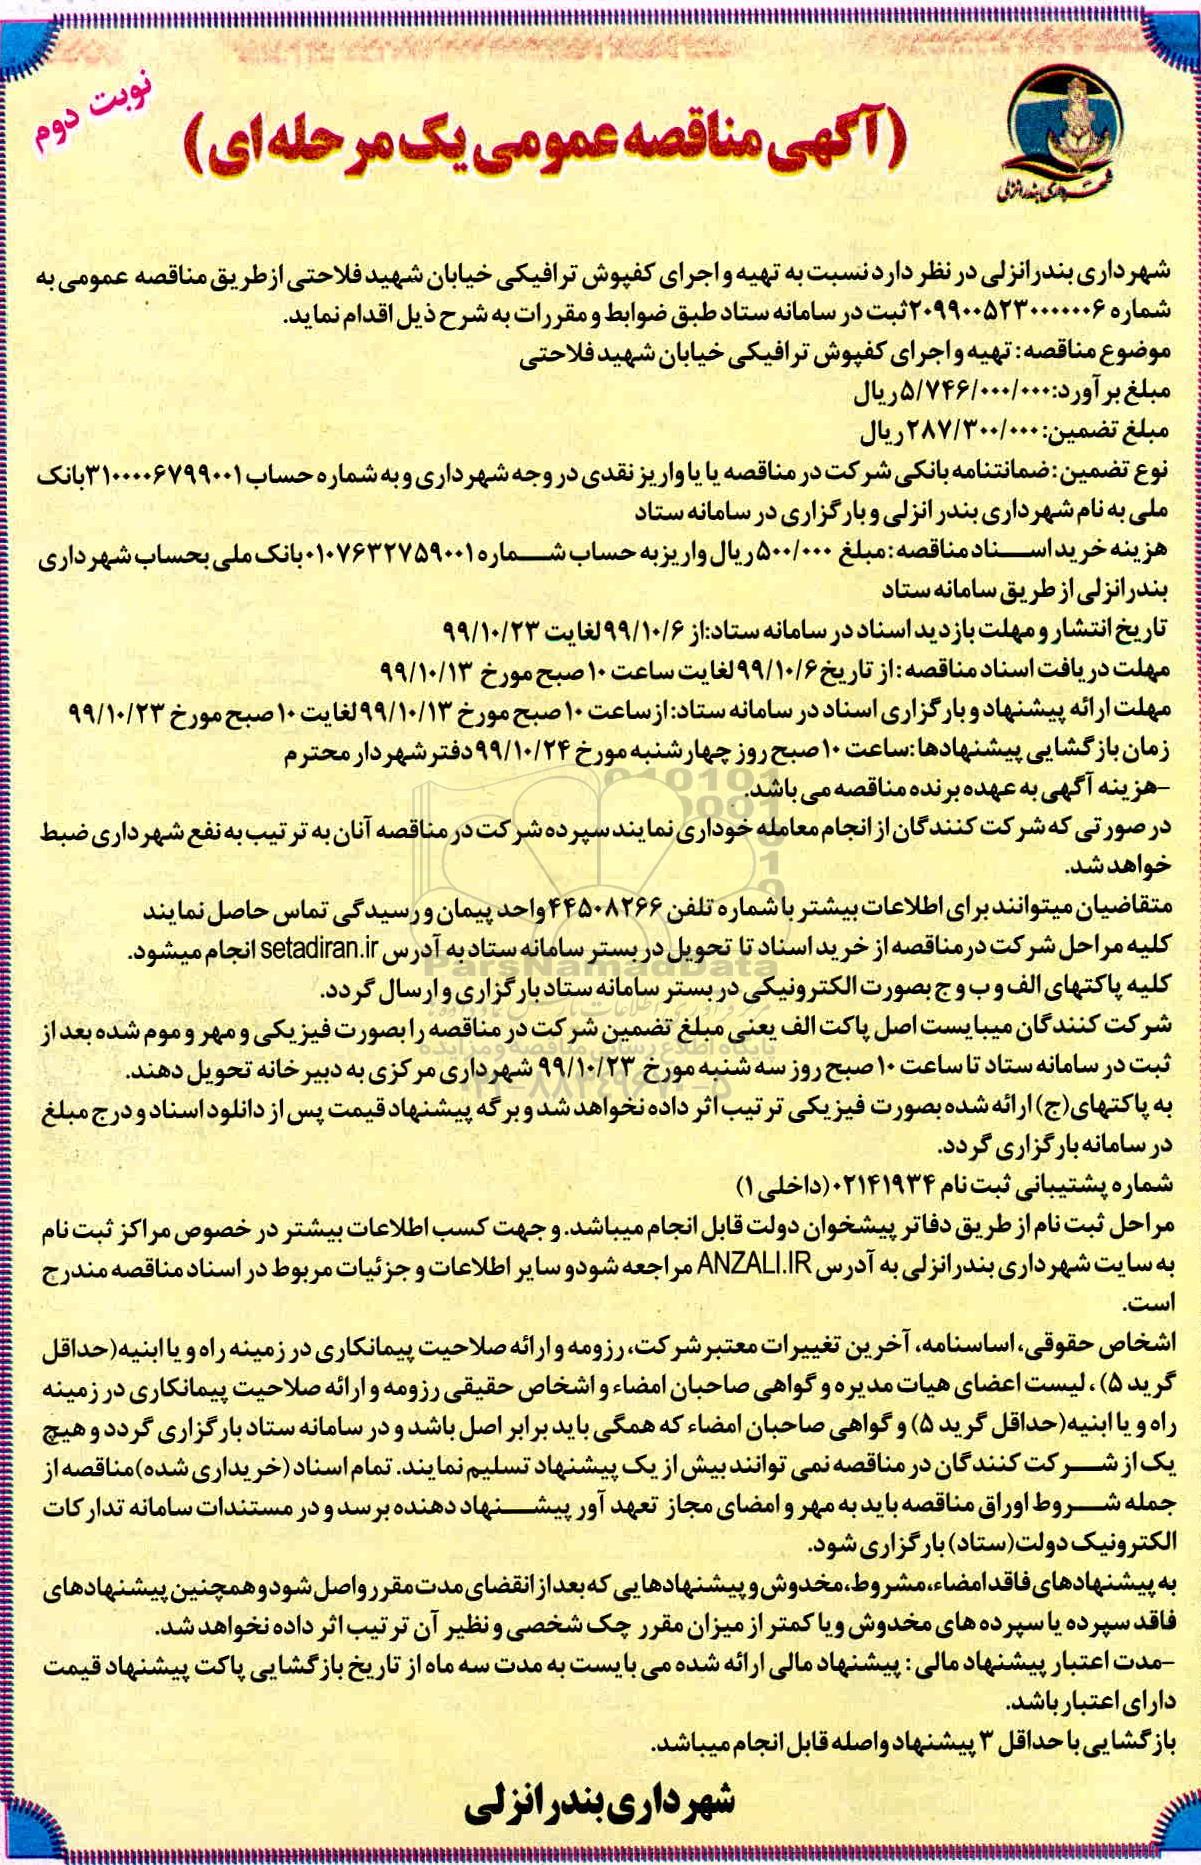 نوبت دوم
(آگهی مناقصه عمومی یک مرحله ای)
شهرداری بندرانزلی
شهرداری بندرانزلی در نظر دارد نسبت به تهیه و اجرای کفپوش ترافیکی خیابان شهید فلاحتی از طریق مناقصه عمومی به
شماره ۲۰۹۹۰۰۵۲۳۰۰۰۰۰۰۶ ثبت در سامانه ستاد طبق ضوابط و مقررات به شرح ذیل اقدام نماید.
موضوع مناقصه: تهیه و اجرای کفپوش ترافیکی خیابان شهید فلاحتی
مبلغ برآورد: ۵/۷۴۶/۰۰۰/۰۰۰ ریال
مبلغ تضمین: ۲۸۷/۳۰۰/۰۰۰ ریال
نوع تضمین: ضمانتنامه بانکی شرکت در مناقصه یا یا واریز نقدی در وجه شهرداری و به شماره حساب ۳۱۰۰۰۰۶۷۹۹۰۰۱ بانک
ملی به نام شهرداری بندر انزلی و بارگزاری در سامانه ستاد
هزینه خرید اسناد مناقصه: مبلغ ۵۰۰/۰۰۰ ریال واریز به حساب شماره ۰۱۰۷۶۳۲۷۵۹۰۰۱ بانک ملی بحساب شهرداری
بندرانزلی از طریق سامانه ستاد
تاریخ انتشار و مهلت بازدید اسناد در سامانه ستاد: از ۹۹/۱۰/۶ لغایت ۹۹/۱۰/۲۳
مهلت دریافت اسناد مناقصه: از تاریخ ۹۹/۱۰/۶ لغایت ساعت ۱۰ صبح مورخ ۹۹/۱۰/۱۳
مهلت ارائه پیشنهاد و بارگزاری اسناد در سامانه ستاد: از ساعت ۱۰ صبح مورخ ۹۹/۱۰/۱۳ لغایت ۱۰ صبح مورخ ۹۹/۱۰/۲۳
زمان بازگشایی پیشنهادها: ساعت ۱۰ صبح روز چهارشنبه مورخ ۹۹/۱۰/۲۴ دفتر شهردار محترم
-هزینه آگهی به عهده برنده مناقصه می باشد.
در صورتی که شرکت کنندگان از انجام معامله خوداری نمایند سپرده شرکت در مناقصه آنان به ترتیب به نفع شهرداری ضبط
خواهد شد.
متقاضیان میتوانند برای اطلاعات بیشتر با شماره تلفن ۴۴۵۰۸۲۶۶ واحد پیمان و رسیدگی تماس حاصل نمایند
کلیه مراحل شرکت در مناقصه از خرید اسناد تا تحویل در بستر سامانه ستاد به آدرس setadiran.ir انجام میشود.
ParsNamadData
کلیه پاکتهای الف و ب و ج بصورت الکترونیکی در بستر سامانه ستاد بارگزاری و ارسال گردد.
شرکت کنندگان میبایست اصل پاکت الف یعنی مبلغ تضمین شرکت در مناقصه را بصورت فیزیکی و مهر و موم شده بعد از
پایگاه اطلاع رسانی مناقصه و مزایده
ثبت در سامانه ستاد تا ساعت ۱۰ صبح روز سه شنبه مورخ ۹۹/۱۰/۲۳ شهرداری مرکزی به دبیرخانه تحویل دهند.
به پاکتهای(ج) ارائه شده بصورت فیزیکی ترتیب اثر داده نخواهد شد و برگه پیشنهاد قیمت پس از دانلود اسناد و درج مبلغ
در سامانه بارگزاری گردد.
شماره پشتیبانی ثبت نام ۰۲۱۴۱۹۳۴ (داخلی ۱)
مراحل ثبت نام از طریق دفاتر پیشخوان دولت قابل انجام میباشد. و جهت کسب اطلاعات بیشتر در خصوص مراکز ثبت نام
به سایت شهرداری بندرانزلی به آدرس ANZALI.IR مراجعه شود و سایر اطلاعات و جزئیات مربوط در اسناد مناقصه مندرج
است.
اشخاص حقوقی، اساسنامه، آخرین تغییرات معتبر شرکت، رزومه و ارائه صلاحیت پیمانکاری در زمینه راه و یا ابنیه(حداقل
گرید ۵)، لیست اعضای هیات مدیره و گواهی صاحبان امضاء و اشخاص حقیقی رزومه و ارائه صلاحیت پیمانکاری در زمینه
راه و یا ابنیه(حداقل گرید ۵) و گواهی صاحبان امضاء که همگی باید برابر اصل باشد و در سامانه ستاد بارگزاری گردد و هیچ
یک از شرکت کنندگان در مناقصه نمی توانند بیش از یک پیشنهاد تسلیم نمایند. تمام اسناد (خریداری شده) مناقصه از
جمله شروط اوراق مناقصه باید به مهر و امضای مجاز تعهد آور پیشنهاد دهنده برسد و در مستندات سامانه تدارکات
الکترونیک دولت(ستاد) بارگزاری شود.
به پیشنهادهای فاقد امضاء، مشروط، مخدوش و پیشنهادهایی که بعد از انقضای مدت مقرر واصل شود و همچنین پیشنهادهای
فاقد سپرده یا سپرده های مخدوش و یا کمتر از میزان مقرر چک شخصی و نظیر آن ترتیب اثر داده نخواهد شد.
-مدت اعتبار پیشنهاد مالی: پیشنهاد مالی ارائه شده می بایست به مدت سه ماه از تاریخ بازگشایی پاکت پیشنهاد قیمت
دارای اعتبار باشد.
بازگشایی با حداقل ۳ پیشنهاد واصله قابل انجام میباشد.
شهرداری بندر انزلی